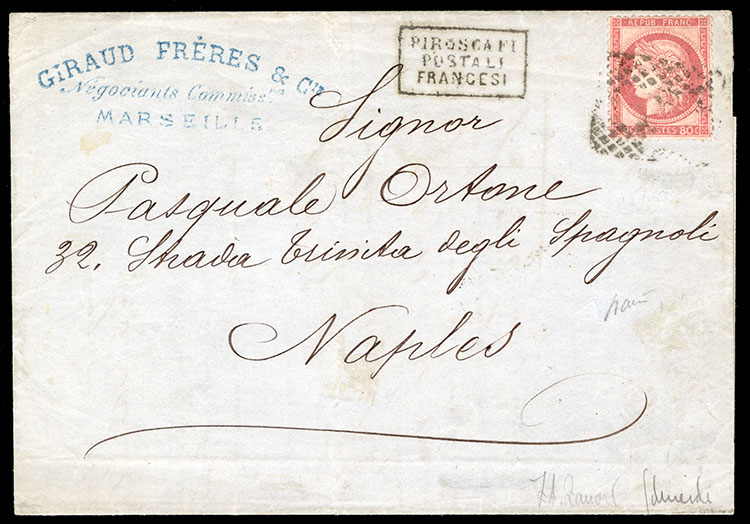 GIRAUD FRÈRES & Cie
Négociants Commiss
MARSEILLE
PIROSCAFI
POSTALI
FRANCESI
REPUB. FRANC.
POSTES 80
Signor
Pasquale Ortone
32, Strada Trinita degli Spagnoli
Naples